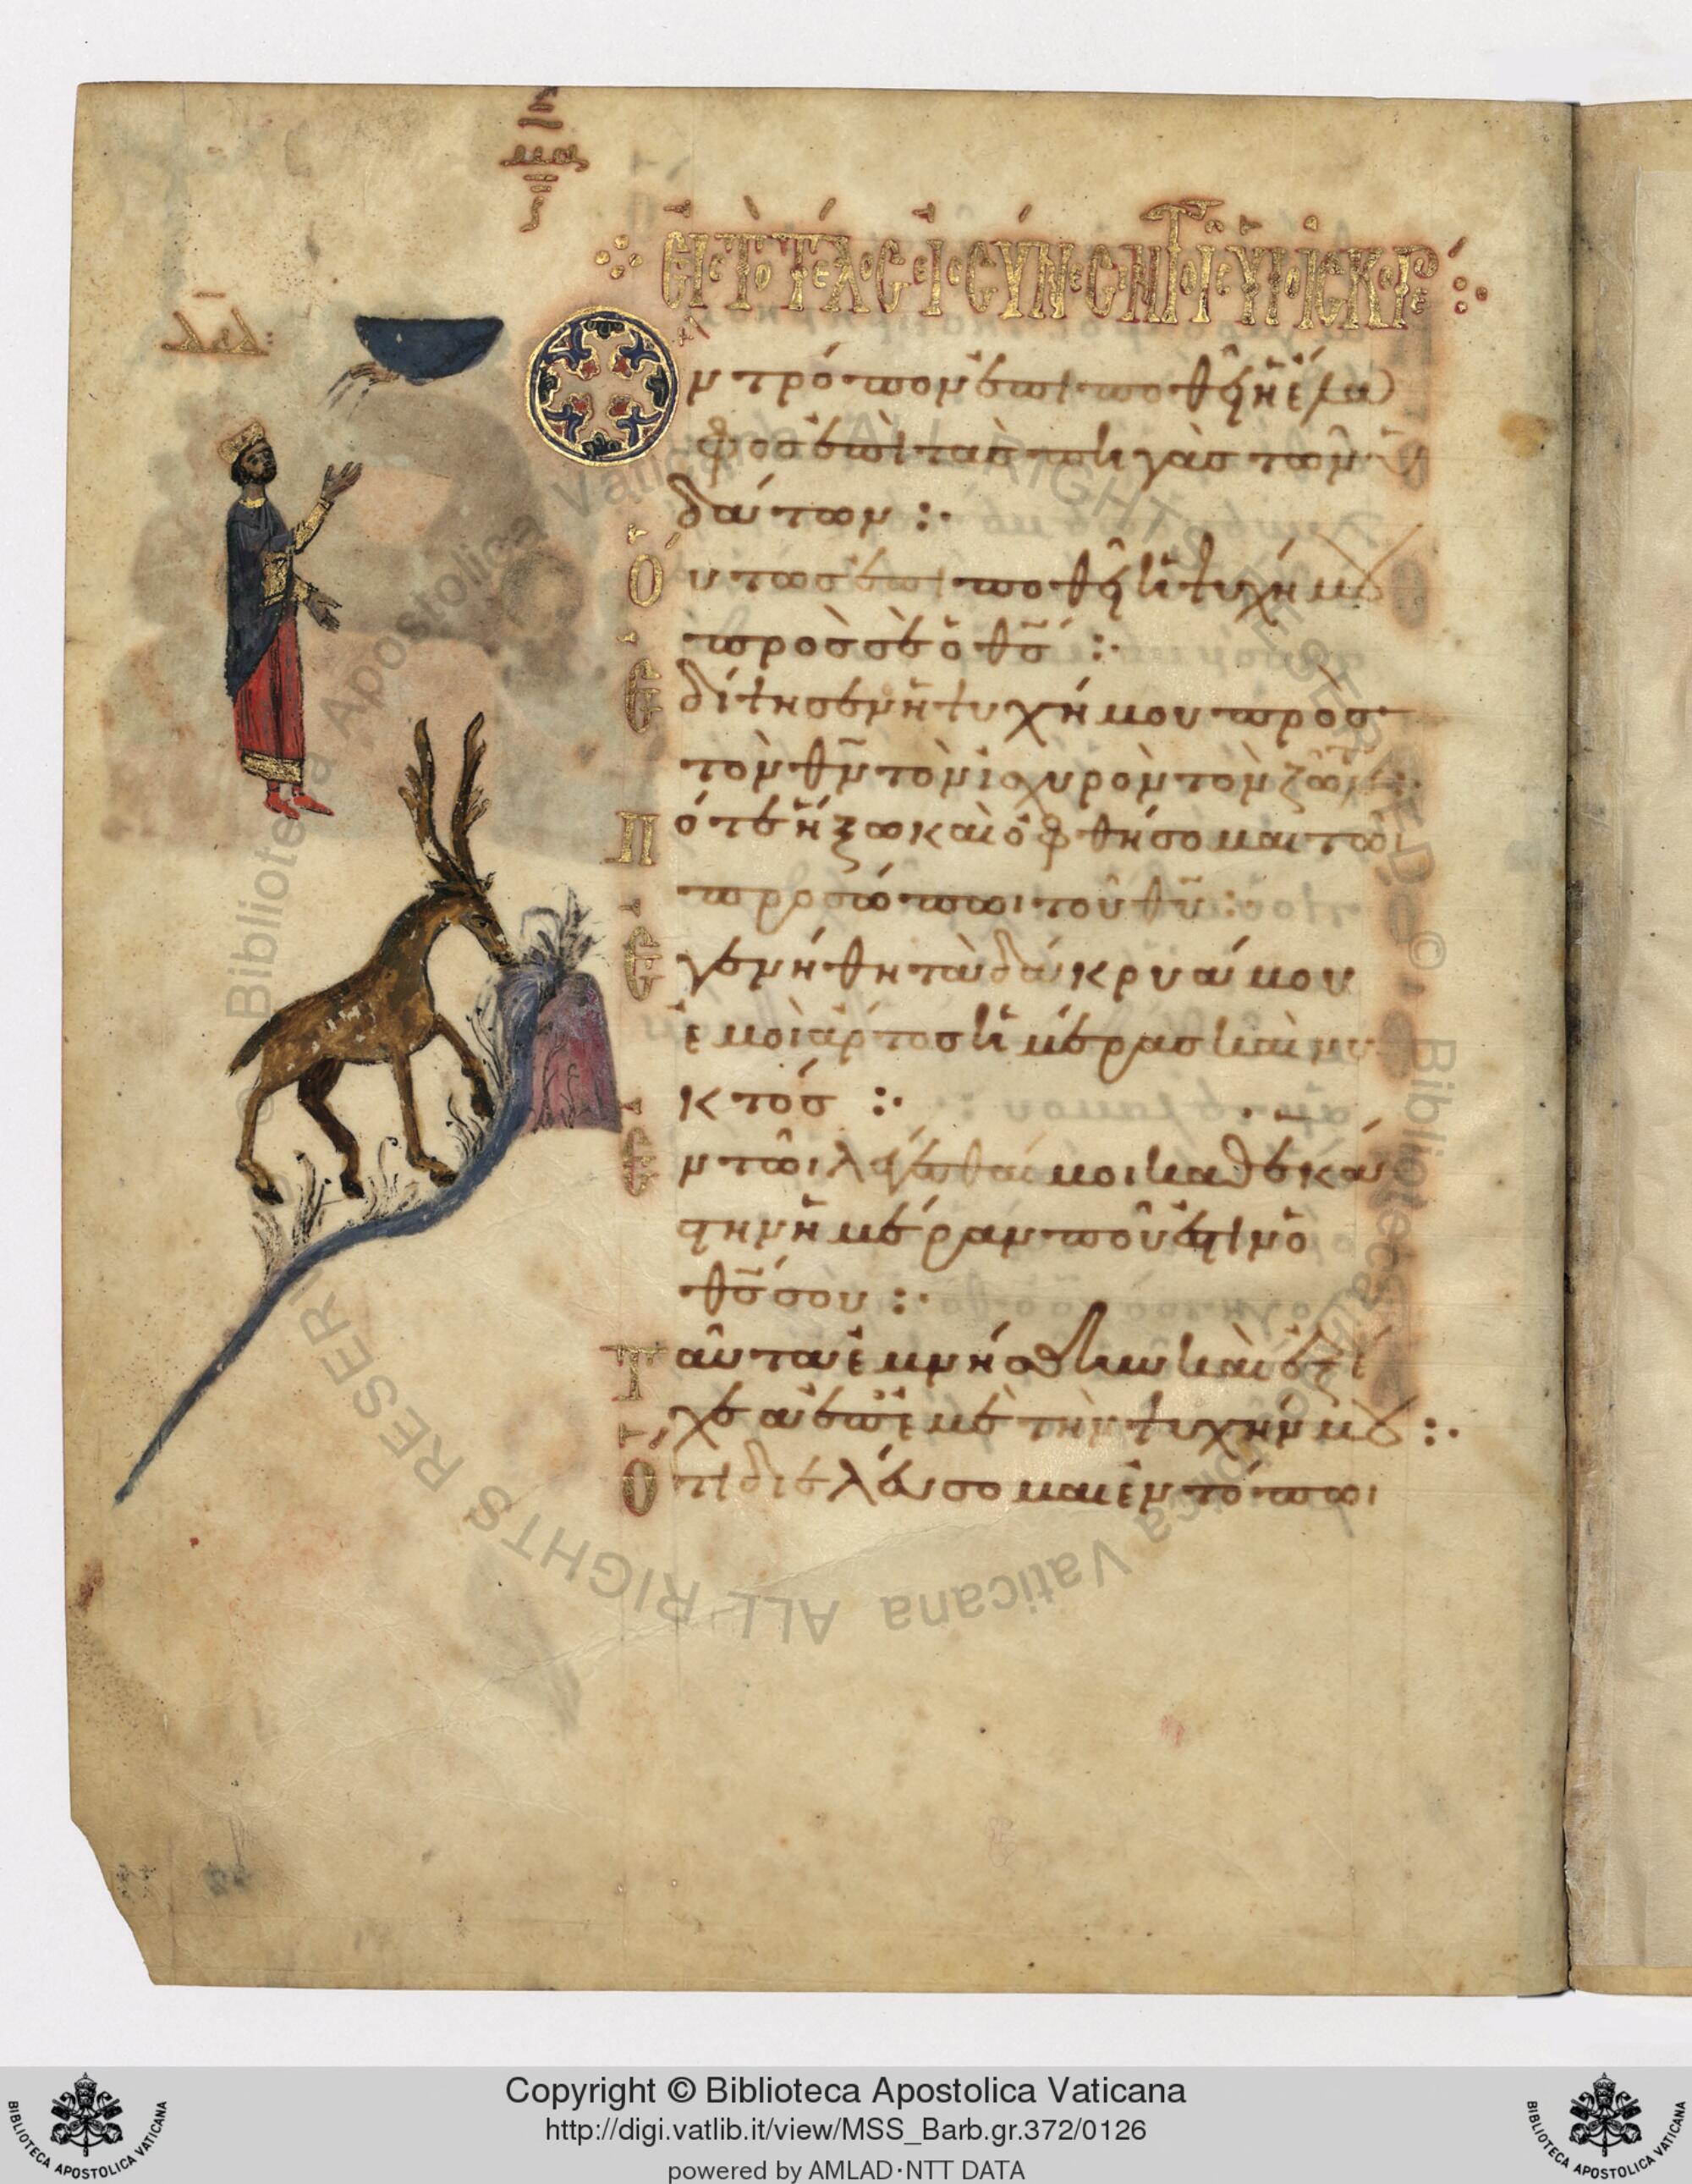 μα
Εἰς τὸ τέλος εἰς σύνεσιν τοῖς υἱοῖς Κορέ
δαδ
Ὃν τρόπον ἐπιποθεῖ ἡ ἔλα
φος ἐπὶ τὰς πηγὰς τῶν ὑ
δάτων :·
Οὕτως ἐπιποθεῖ ἡ ψυχή μου
πρὸς σὲ ὁ θς :·
Ἐδίψησεν ἡ ψυχή μου πρὸς
τὸν θν τὸν ἰσχυρὸν τὸν ζῶντα :·
πότε ἥξω καὶ ὀφθήσομαι τῶι
προσώπωι τοῦ θυ :·
Ἐγενήθη τὰ δάκρυά μου
ἐμοὶ ἄρτος ἡμέρας καὶ νυ
κτός :·
Ἐν τῶι λέγεσθαί μοι καθ' ἑκά
στην ἡμέραν ποῦ ἐστὶν ὁ
θς σου :·
Ταῦτα ἐμνήσθην καὶ ἐξέ
χεα ἐπ' ἐμὲ τὴν ψυχήν μου :·
Ὅτι διελεύσομαι ἐν τόπωι
© Biblioteca Apostolica Vaticana ALL RIGHTS RESERVED
© Biblioteca Apostolica Vaticana ALL RIGHTS RESERVED
Copyright © Biblioteca Apostolica Vaticana
http://digi.vatlib.it/view/MSS_Barb.gr.372/0126
powered by AMLAD·NTT DATA
BIBLIOTECA APOSTOLICA VATICANA
BIBLIOTECA APOSTOLICA VATICANA